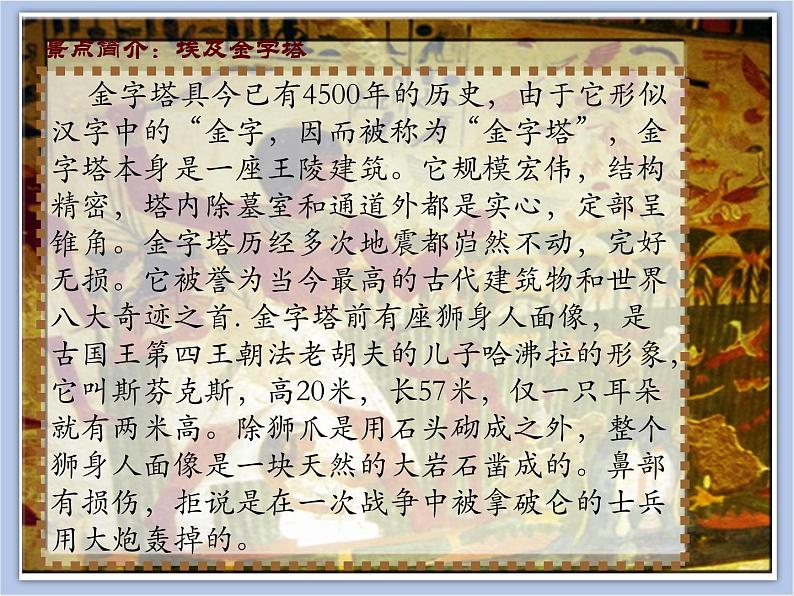 景点简介：埃及金字塔
金字塔具今已有4500年的历史，由于它形似
汉字中的“金字，因而被称为“金字塔”，金
字塔本身是一座王陵建筑。它规模宏伟，结构
精密，塔内除墓室和通道外都是实心，定部呈
锥角。金字塔历经多次地震都岿然不动，完好
无损。它被誉为当今最高的古代建筑物和世界
八大奇迹之首. 金字塔前有座狮身人面像，是
古国王第四王朝法老胡夫的儿子哈沸拉的形象，
它叫斯芬克斯，高20米，长57米，仅一只耳朵
就有两米高。除狮爪是用石头砌成之外，整个
狮身人面像是一块天然的大岩石凿成的。鼻部
有损伤，拒说是在一次战争中被拿破仑的士兵
用大炮轰掉的。